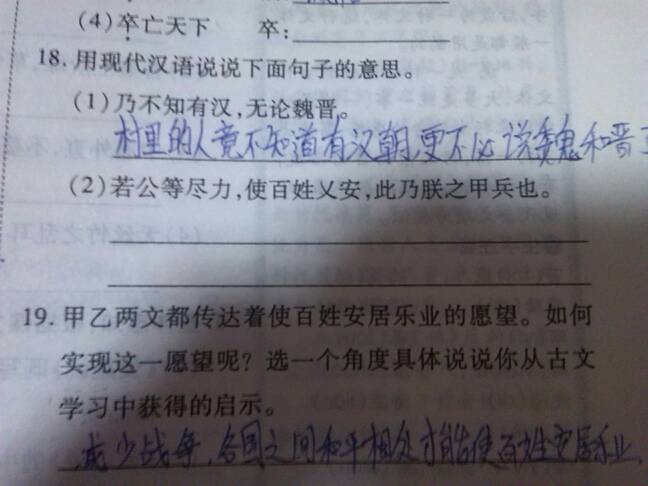 (4)卒亡天下 卒:
18.用现代汉语说说下面句子的意思。
(1)乃不知有汉,无论魏晋。
村里的人竟不知道有汉朝,更不必说魏和晋了
(2)若公等尽力,使百姓乂安,此乃朕之甲兵也。
19.甲乙两文都传达着使百姓安居乐业的愿望。如何
实现这一愿望呢?选一个角度具体说说你从古文
学习中获得的启示。
减少战争,各国之间和平相处才能使百姓安居乐业